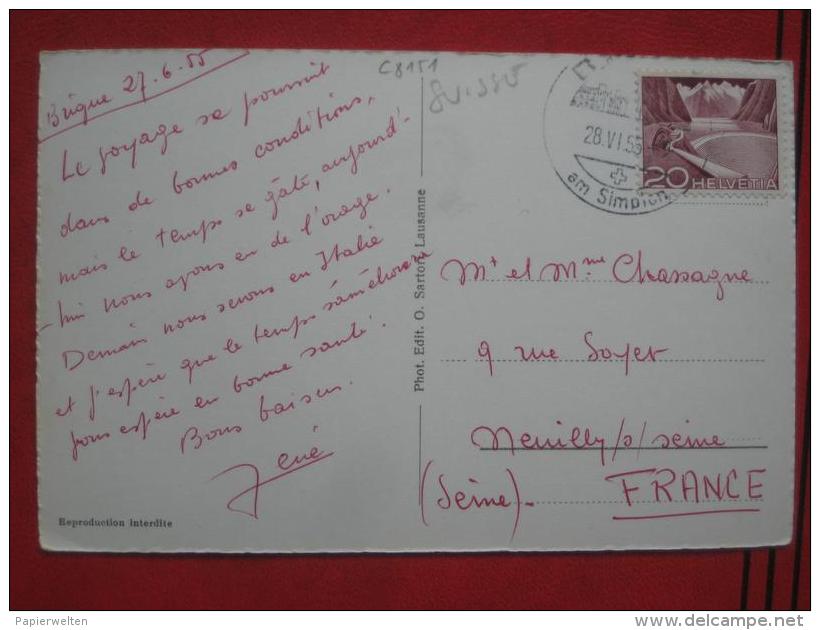 Brigue 27.6.55
Le voyage se poursuit
dans de bonnes conditions,
mais le temps se gâte, aujourd'-
-hui nous avons eu de l'orage.
Demain nous serons en Italie
et j'espère que le temps s'améliorera
vous espère en bonne santé.
Bons baisers.
René
Reproduction interdite
Phot. Edit. O. Sartori, Lausanne
C8151
SUISSE
28.VI.55
am Simplon
20 HELVETIA
Mr et Mme Chassagne
9 rue Soyer
Neuilly s/ seine
(Seine).
FRANCE
Papierwelten
delcampe.net